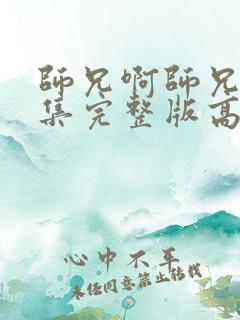 師兄啊師兄
集完整版高
心中不平
未经同意禁止转载